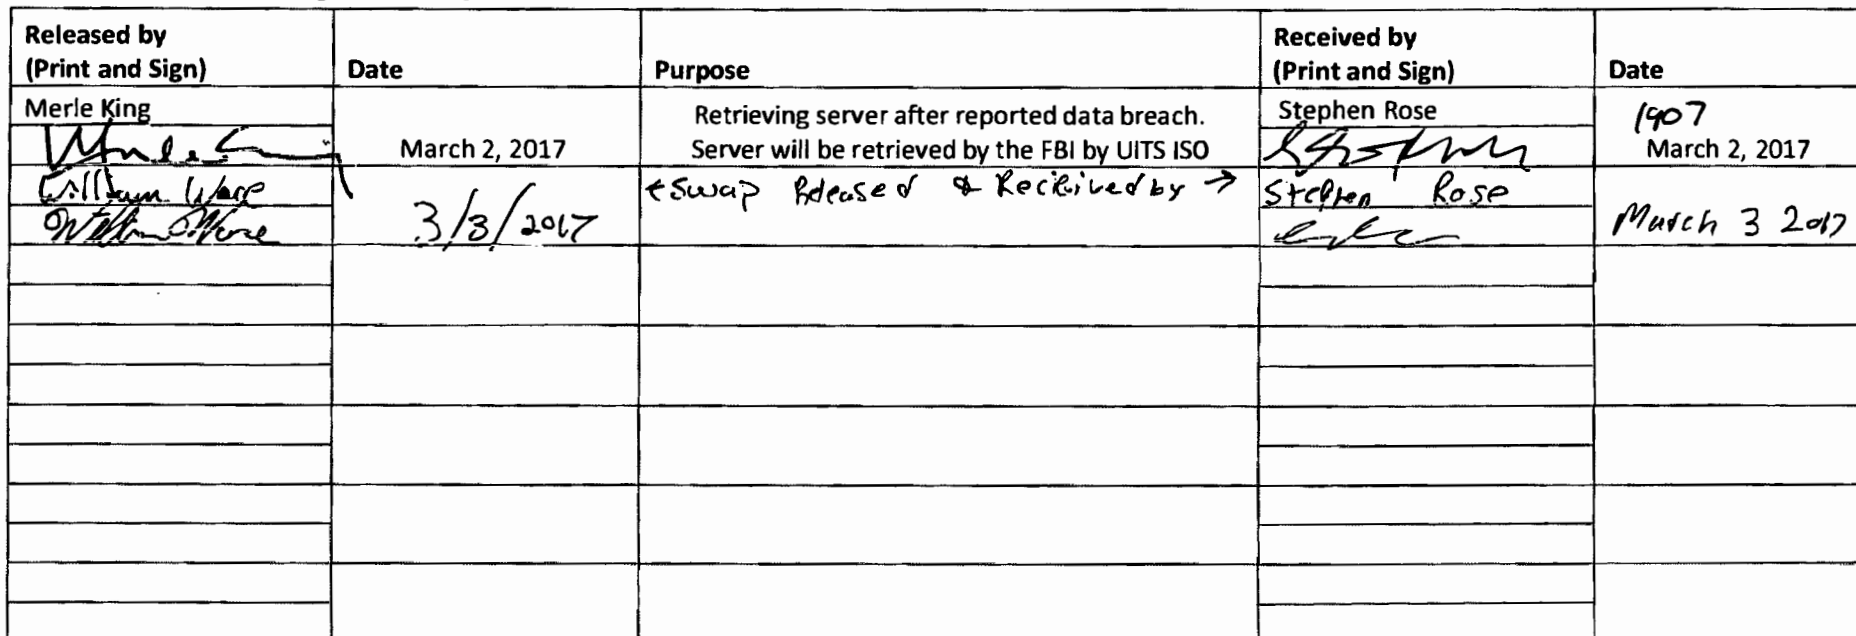 Released by
(Print and Sign)
Date
Purpose
Received by
(Print and Sign)
Date
Merle King
March 2, 2017
Retrieving server after reported data breach.
Server will be retrieved by the FBI by UITS ISO
Stephen Rose
1907
March 2, 2017
William Ware
3/3/2017
←Swap Released & Received by →
Stephen Rose
March 3 2017